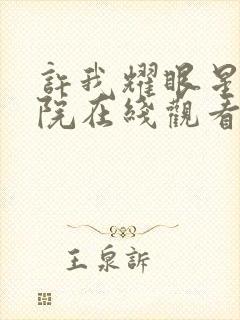 許我耀眼星
院在綫觀看
王泉訴